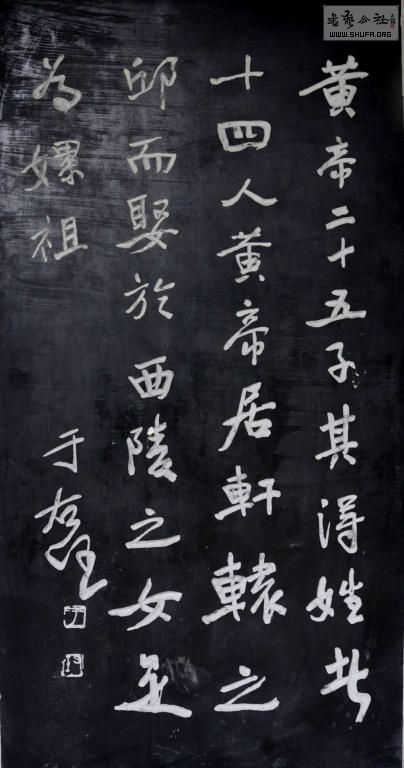 黄帝二十五子其得姓者
十四人黄帝居軒轅之
邱而娶於西陵之女是
為嫘祖
于右任
書藝公社
WWW.SHUFA.ORG